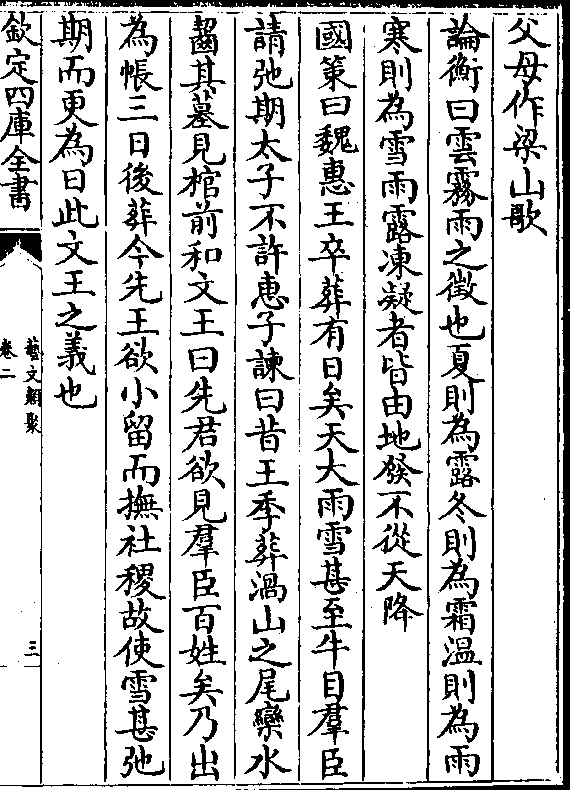 父母作梁山歌
論衡曰雲霧雨之徴也夏則為露冬則為霜温則為雨
寒則為雪雨露凍凝者皆由地發不從天降
國策曰魏惠王卒葬有日矣天大雨雪甚至牛目羣臣
請弛期太子不許惠子諫曰昔王季葬渦山之尾欒水
齧其墓見棺前和文王曰先君欲見羣臣百姓矣乃出
為帳三日後葬今先王欲小留而撫社稷故使雪甚弛
期而更為日此文王之義也
欽定四庫全書
藝文類聚
卷二
三